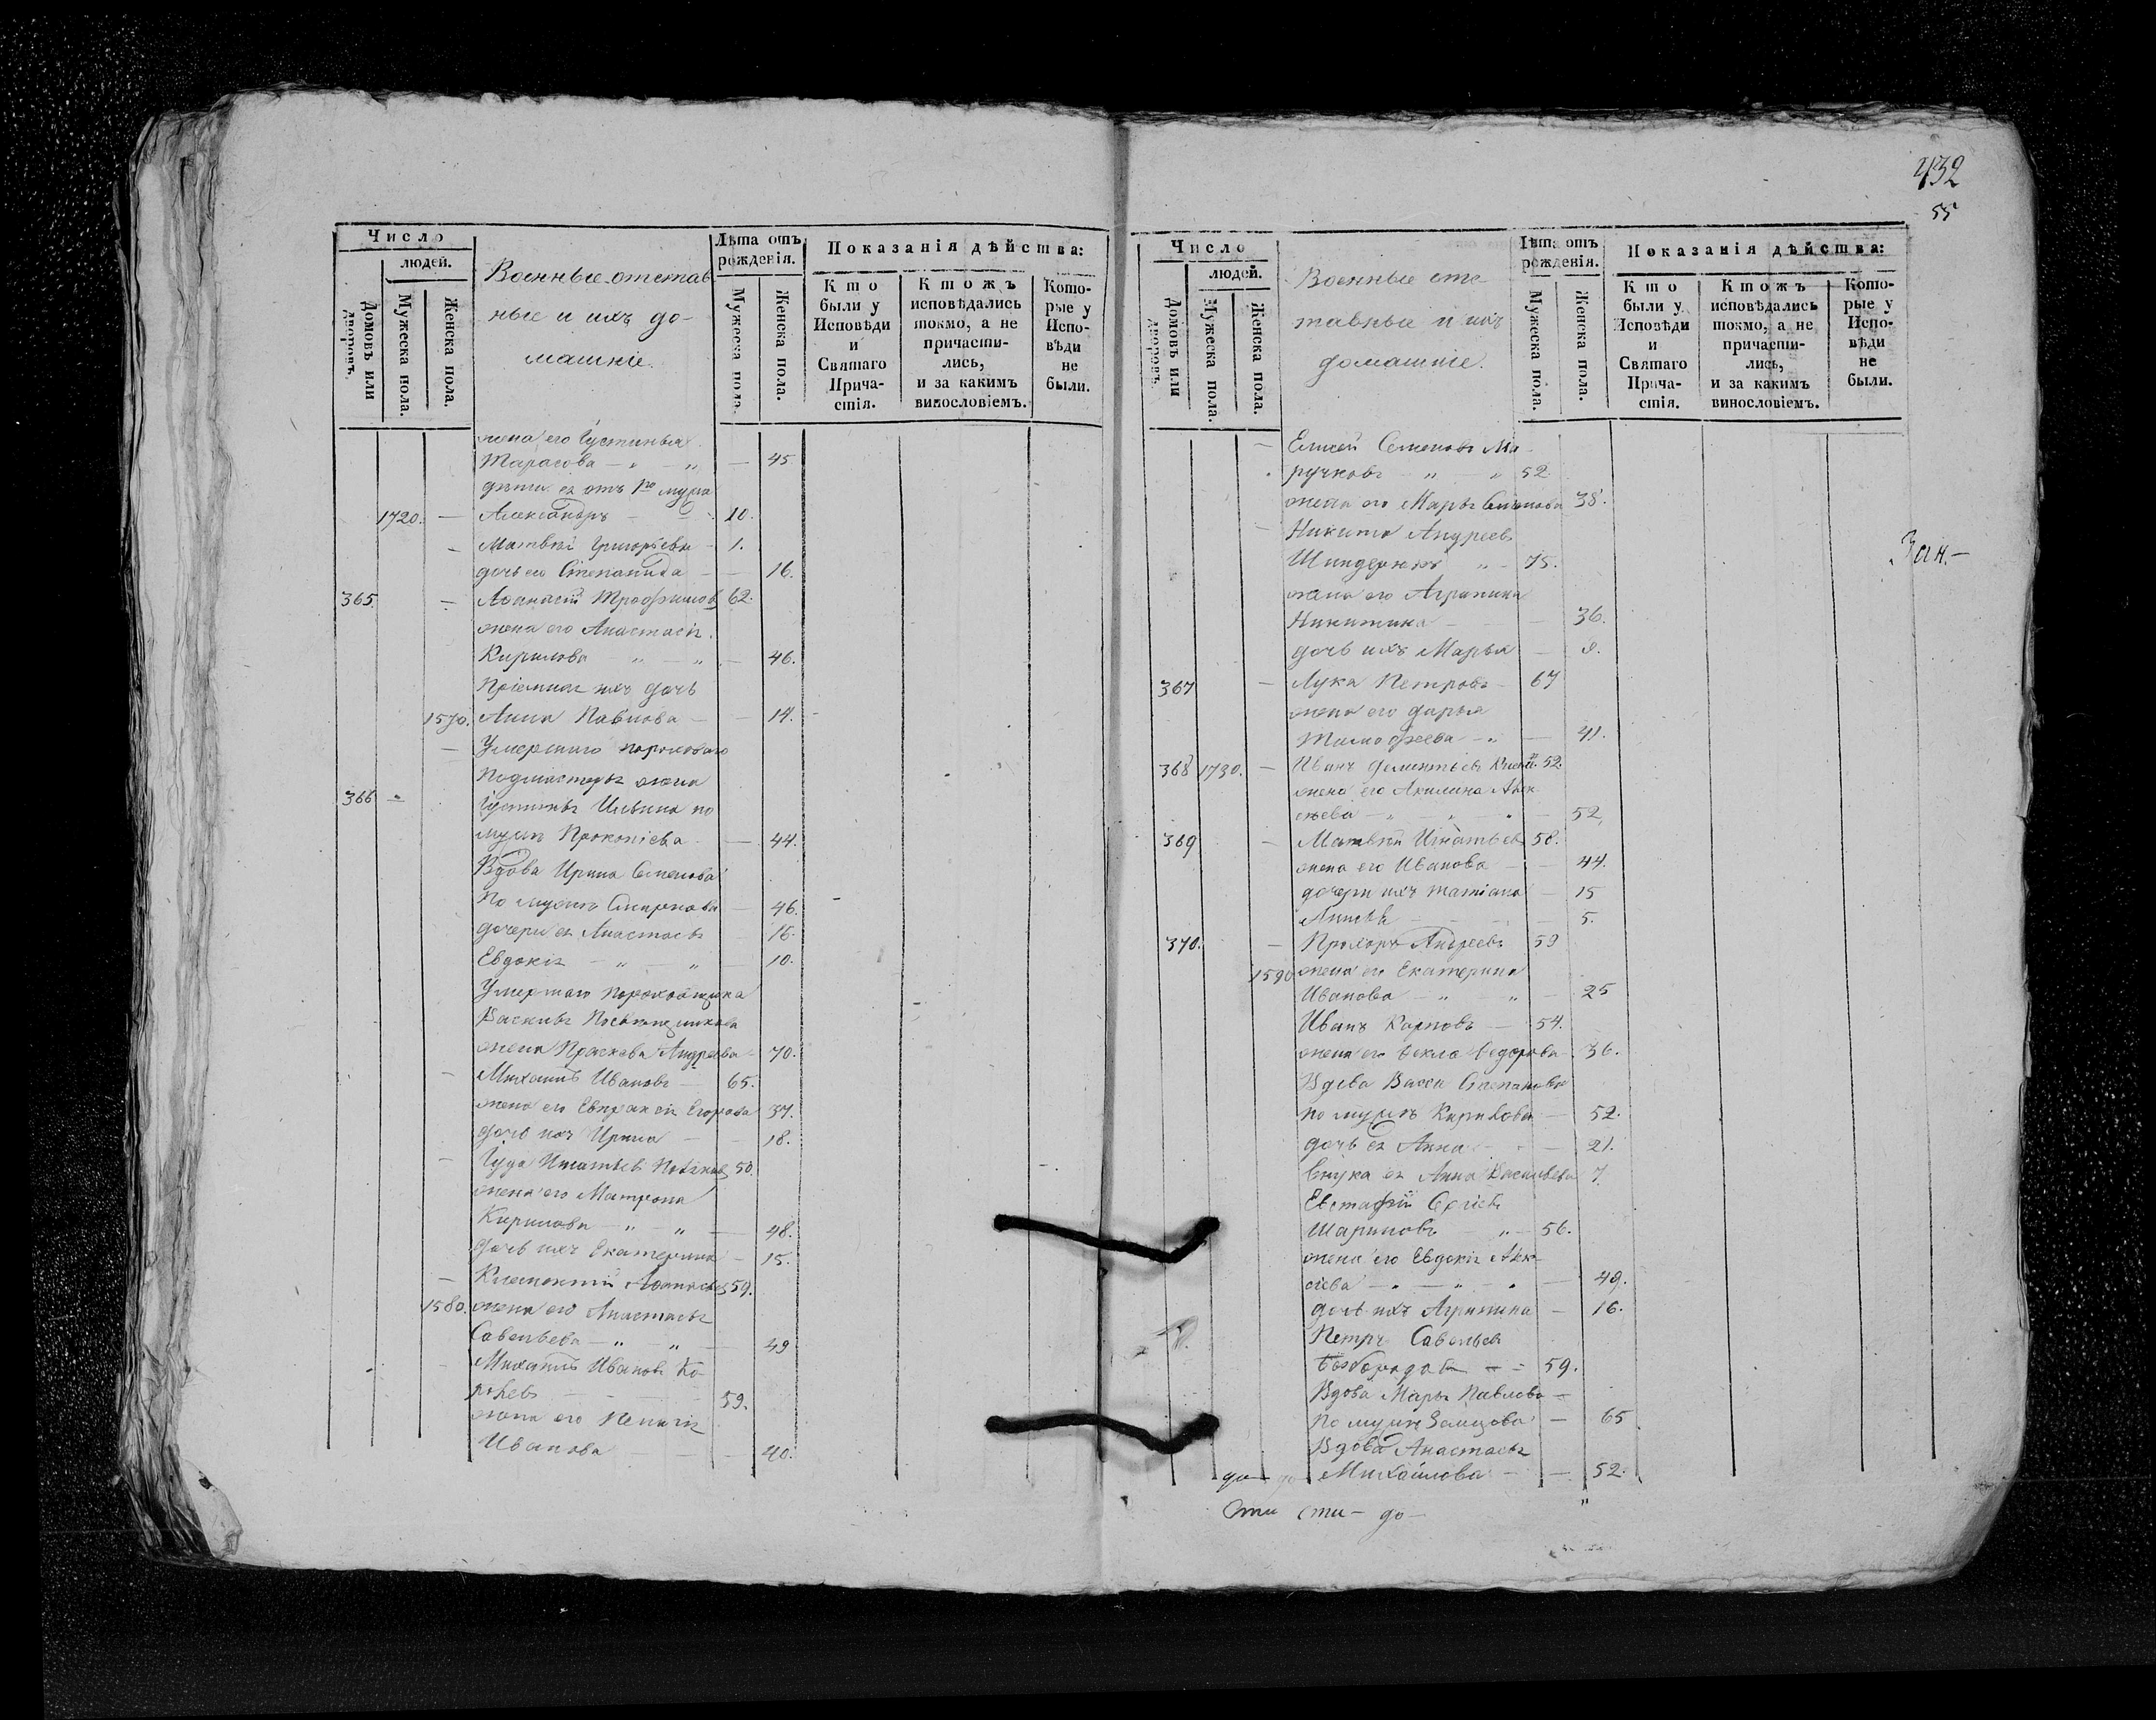 432
55
Число
людей.
Домовъ или дворовъ.
Мужеска пола.
Женска пола.
Военные отстав
ные и ихъ до-
машніе.
Лѣта отъ рожденія.
Мужеска пола.
Женска пола.
Показанія дѣйства:
Кто были у Исповѣди и Святаго Прича-стія.
Ктожъ исповѣдались токмо, а не причасти-лись, и за какимъ винословіемъ.
Кото-рые у Испо-вѣди не были.
жена его Іустинья
Тарасова — „ — „ — 45
дѣти ея отъ 1го мужа
1720. — Александръ — 10.
— Матвѣй Григорьевы - 1.
дочь его Степанида — 16.
365 — Афанасій Трофимовъ 62.
жена его Анастасія
Кирилова „ — „ — 46.
Пріемная ихъ дочь
1570. Анна Павлова — — 14.
— Умершаго пороховаго
Подмастерья жена
366 — Іустинья Ильина по
мужѣ Прокопіева — 44.
Вдова Ирина Семенова
По мужѣ Смирнова — 46.
дочери ея Анастасья 15.
Евдокія — „ — „ — 10.
Умершаго пороховщика
Василья
жена Прасковья Андреева 70.
— Михаилъ Ивановъ — 65.
жена его Евпраксія Егорова 37.
дочь ихъ Ирина — — 18.
— Іуда Игнатьевъ 50.
жена его Матрона
Кирилова — „ — „ — 48.
дочь ихъ Екатерина — 15.
— Климентій Афанасьев 59.
1580. жена его Анастасья
Савельева — „ — „ — 49
— Михаилъ Ивановъ Ко-
59.
жена его Пелагія
Иванова — — 40.
Число
людей.
Домовъ или дворовъ.
Мужеска пола.
Женска пола.
Военные отс-
тавные и ихъ
домашніе.
Лѣта отъ рожденія.
Мужеска пола.
Женска пола.
Показанія дѣйства:
Кто были у Исповѣди и Святаго Прича-стія.
Ктожъ исповѣдались токмо, а не причасти-лись, и за какимъ винословіемъ.
Кото-рые у Испо-вѣди не были.
— Елисей Семеновъ Ма-
ручковъ „ — „ 52
жена его Марья Семенова 38.
— Никита Андреевъ
„ — 75.
жена его Агрипина
Никитина — — 36.
дочь ихъ Марья —
367 — Лука Петровъ — 67
жена его Дарья
Тимофеева — „ — 41.
368 1730. — Иванъ Дементьевъ 52.
жена его Акилина Алек
сѣева — „ — „ — 52,
369 — Матвѣй Игнатьевъ 58.
жена его Иванова — — 44.
дочери ихъ Татіана — 15
— 5.
370. — Прохоръ Андреевъ 59
1590 жена его Екатерина
Иванова — „ — „ — 25
Иванъ Карповъ — 54.
жена его Ѳекла Ѳедорова 36.
Вдова Васса Степанова
по мужѣ Кирилова — 52.
дочь ея Анна — — 21.
Внука ея Анна Васильева 7.
Евстафій Сергіевъ
Шариповъ — „ — 56.
жена его Евдокія Алек-
сіева — „ — „ — 49.
дочь ихъ Агрипина — 16.
Петръ Савельевъ
59.
Вдова Марья Павлова —
по мужѣ Земцова — 65
Вдова Анастасья
Михайлова — — 52.